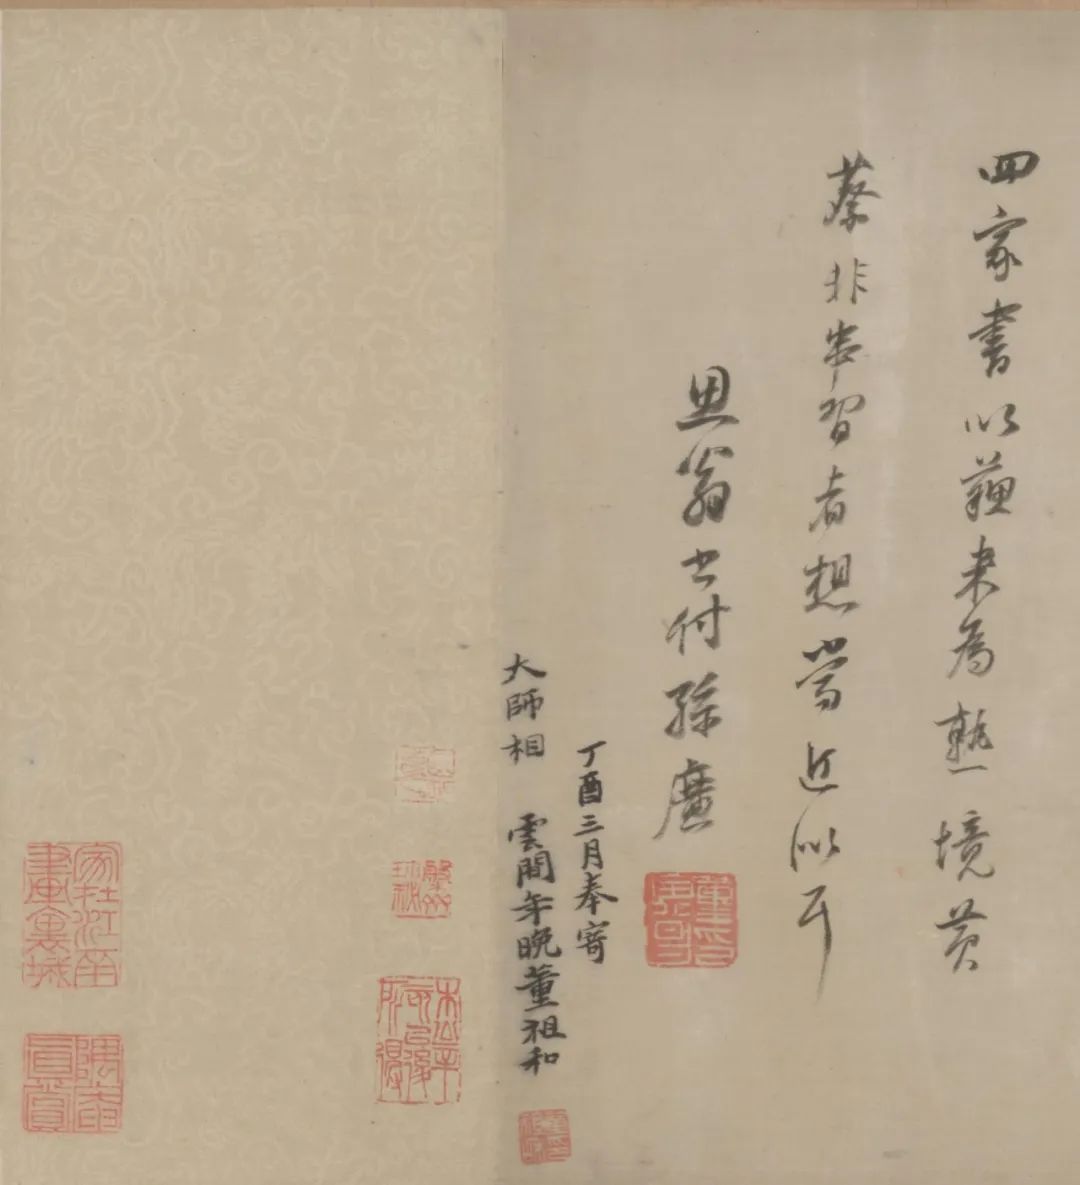 四家書以蘓米為熟境黄
蔡非串習者想當近似耳
思翁書付孫廣
丁酉三月奉寄
大師相 雲間年晚董祖和